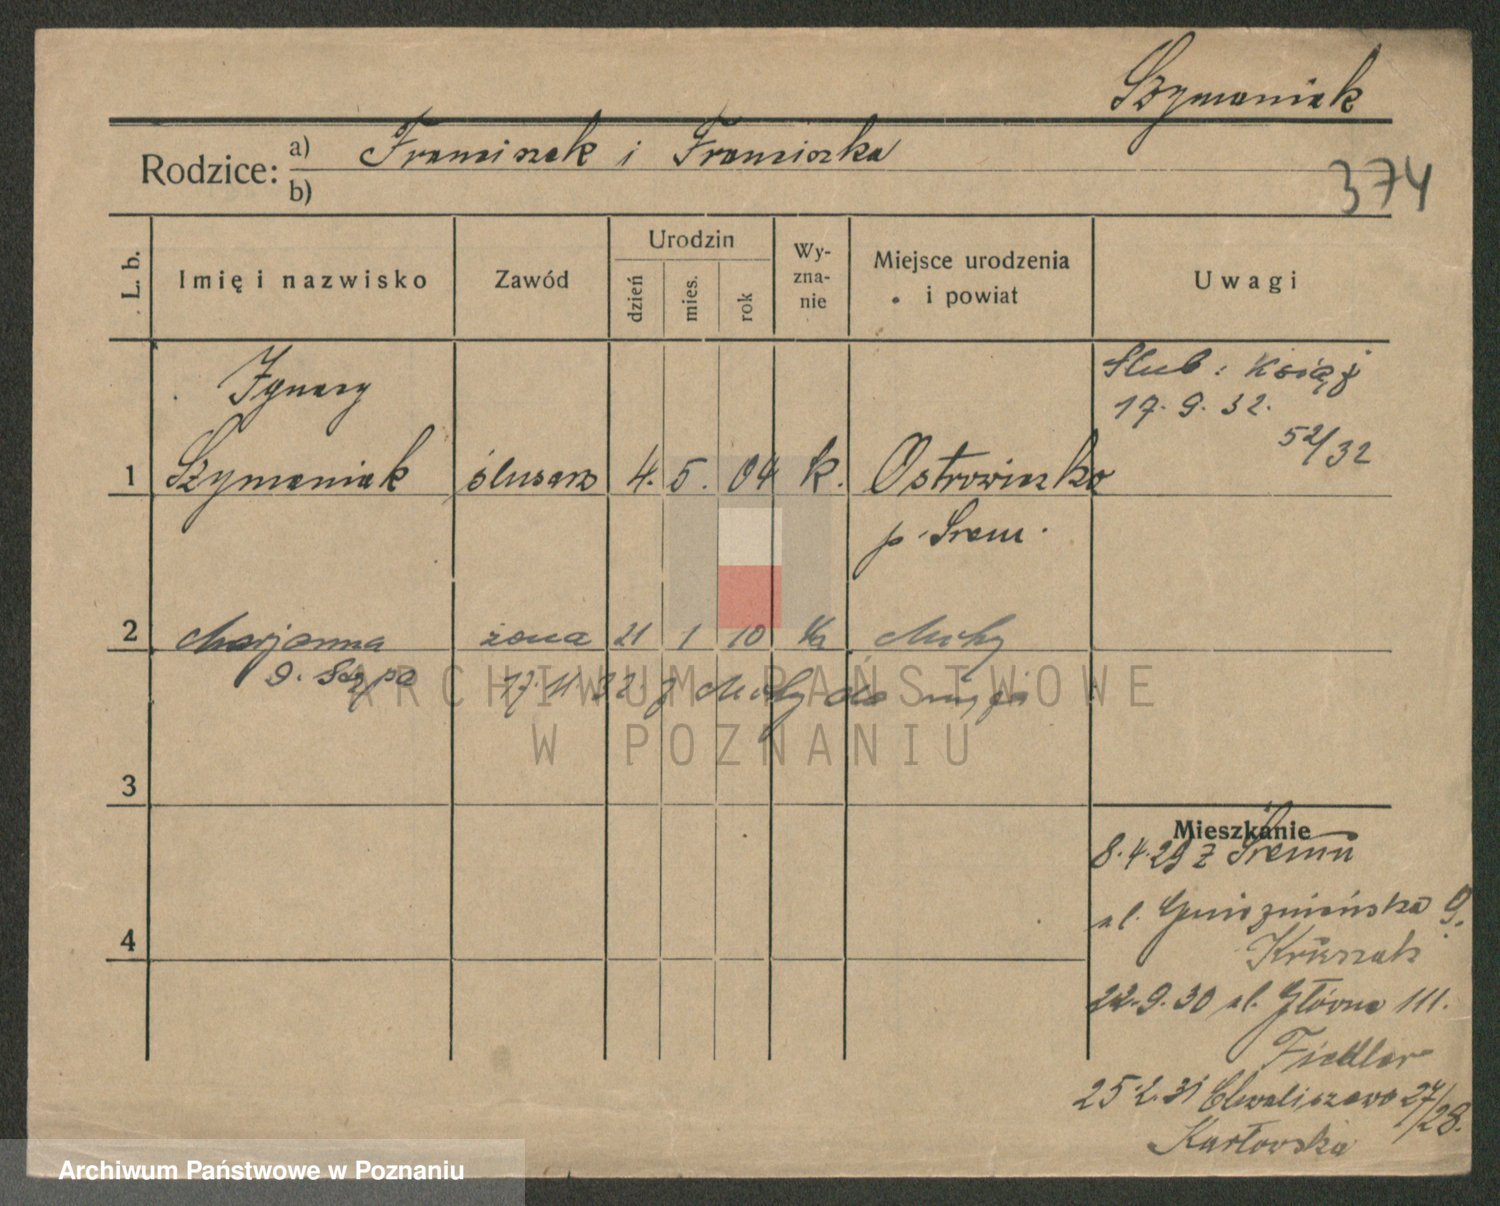 Szymaniak
Rodzice: a) Franciszek i Franciszka
b)
374
L. b.
Imię i nazwisko
Zawód
Urodzin
dzień
mies.
rok
Wy-
zna-
nie
Miejsce urodzenia
i powiat
Uwagi
Ignacy
1 Szymaniak ślusarz 4. 5. 04 k. Ostrowieczko
p. Śrem.
Ślub: Książ
17. 9. 32.
52/32
2 Marjanna żona 21 1 10 Mchy
17.11.32. z Mchy do męża
3
4
Mieszkanie
8.4.29 z Śremu
ul. Gnieźnieńska 9.
22.9.30 ul. Główna 111.
Fiedler
25.2.31 Chwaliszewo 27/28.
Karłowska
ARCHIWUM PAŃSTWOWE
W POZNANIU
Archiwum Państwowe w Poznaniu